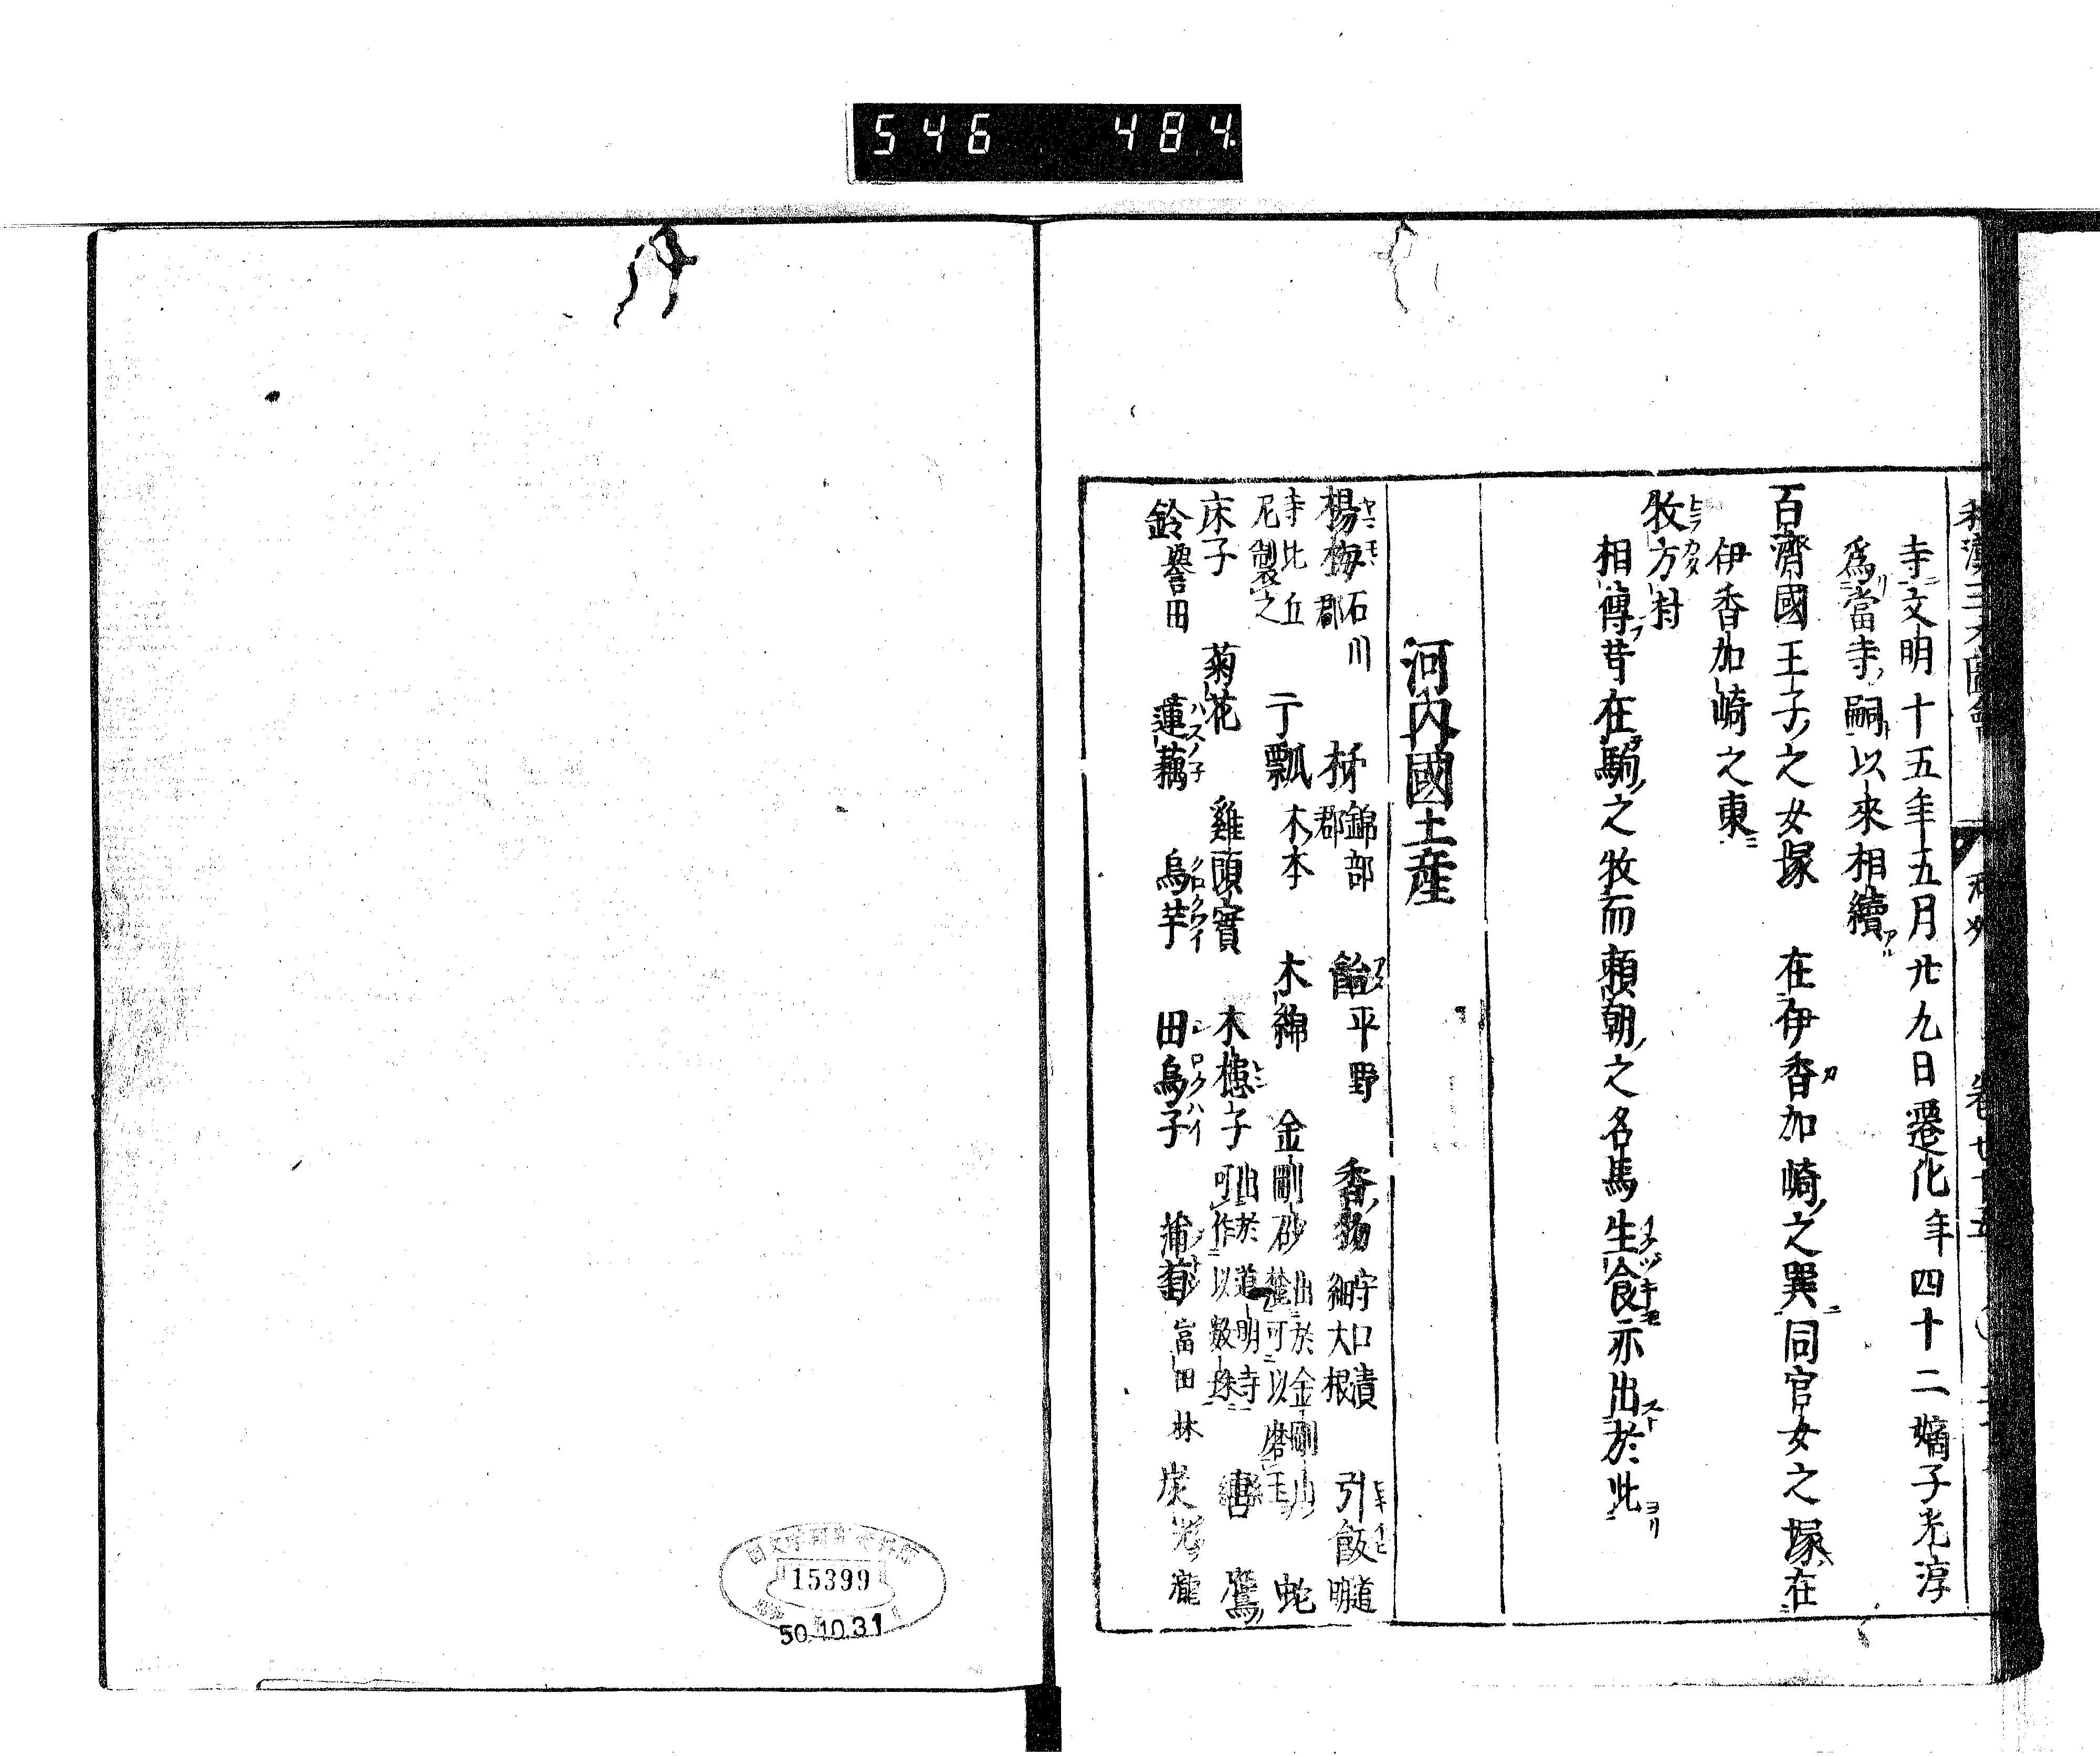 546 484
寺文明十五年五月廿九日遷化年四十二嫡子光淳
爲當寺嗣以來相續
百濟國王子之女塚 在伊香加崎之巽同官女之塚在
伊香加崎之東
牧方村
相傳昔在駒之牧而賴朝之名馬生食亦出於此
河內國土產
楊梅 石川郡 柹 錦部郡 飴 平野 香物 守口漬細大根 引飯 道明
寺比丘尼製之 干瓢 木本 木綿 金剛砂 出於金剛山麓可以磨玉 蛇
床子 菊花 雞頭實 木槵子 出於道明寺可作以數珠 唐 鷹
鈴 譽田 蓮藕 烏芋 田烏子 蒲萄 富田林 炭 瀧
15399
50.10.31